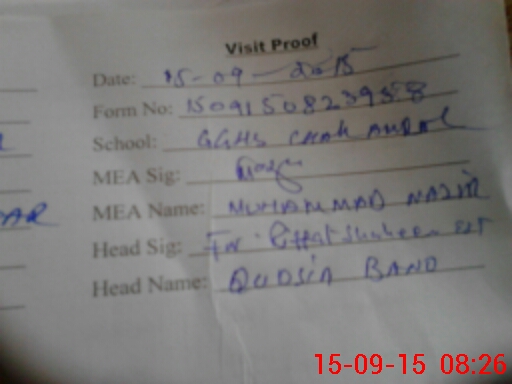 Visit Proof
Date: 15-09-2015
Form No: 1509150823958
School: GGHS CHAK
MEA Sig:
MEA Name: MUHAMMAD NAZIR
AR
Head Sig: For. Iffat Shaheen EST
Head Name: QUDSIA BANO
15-09-15 08:26